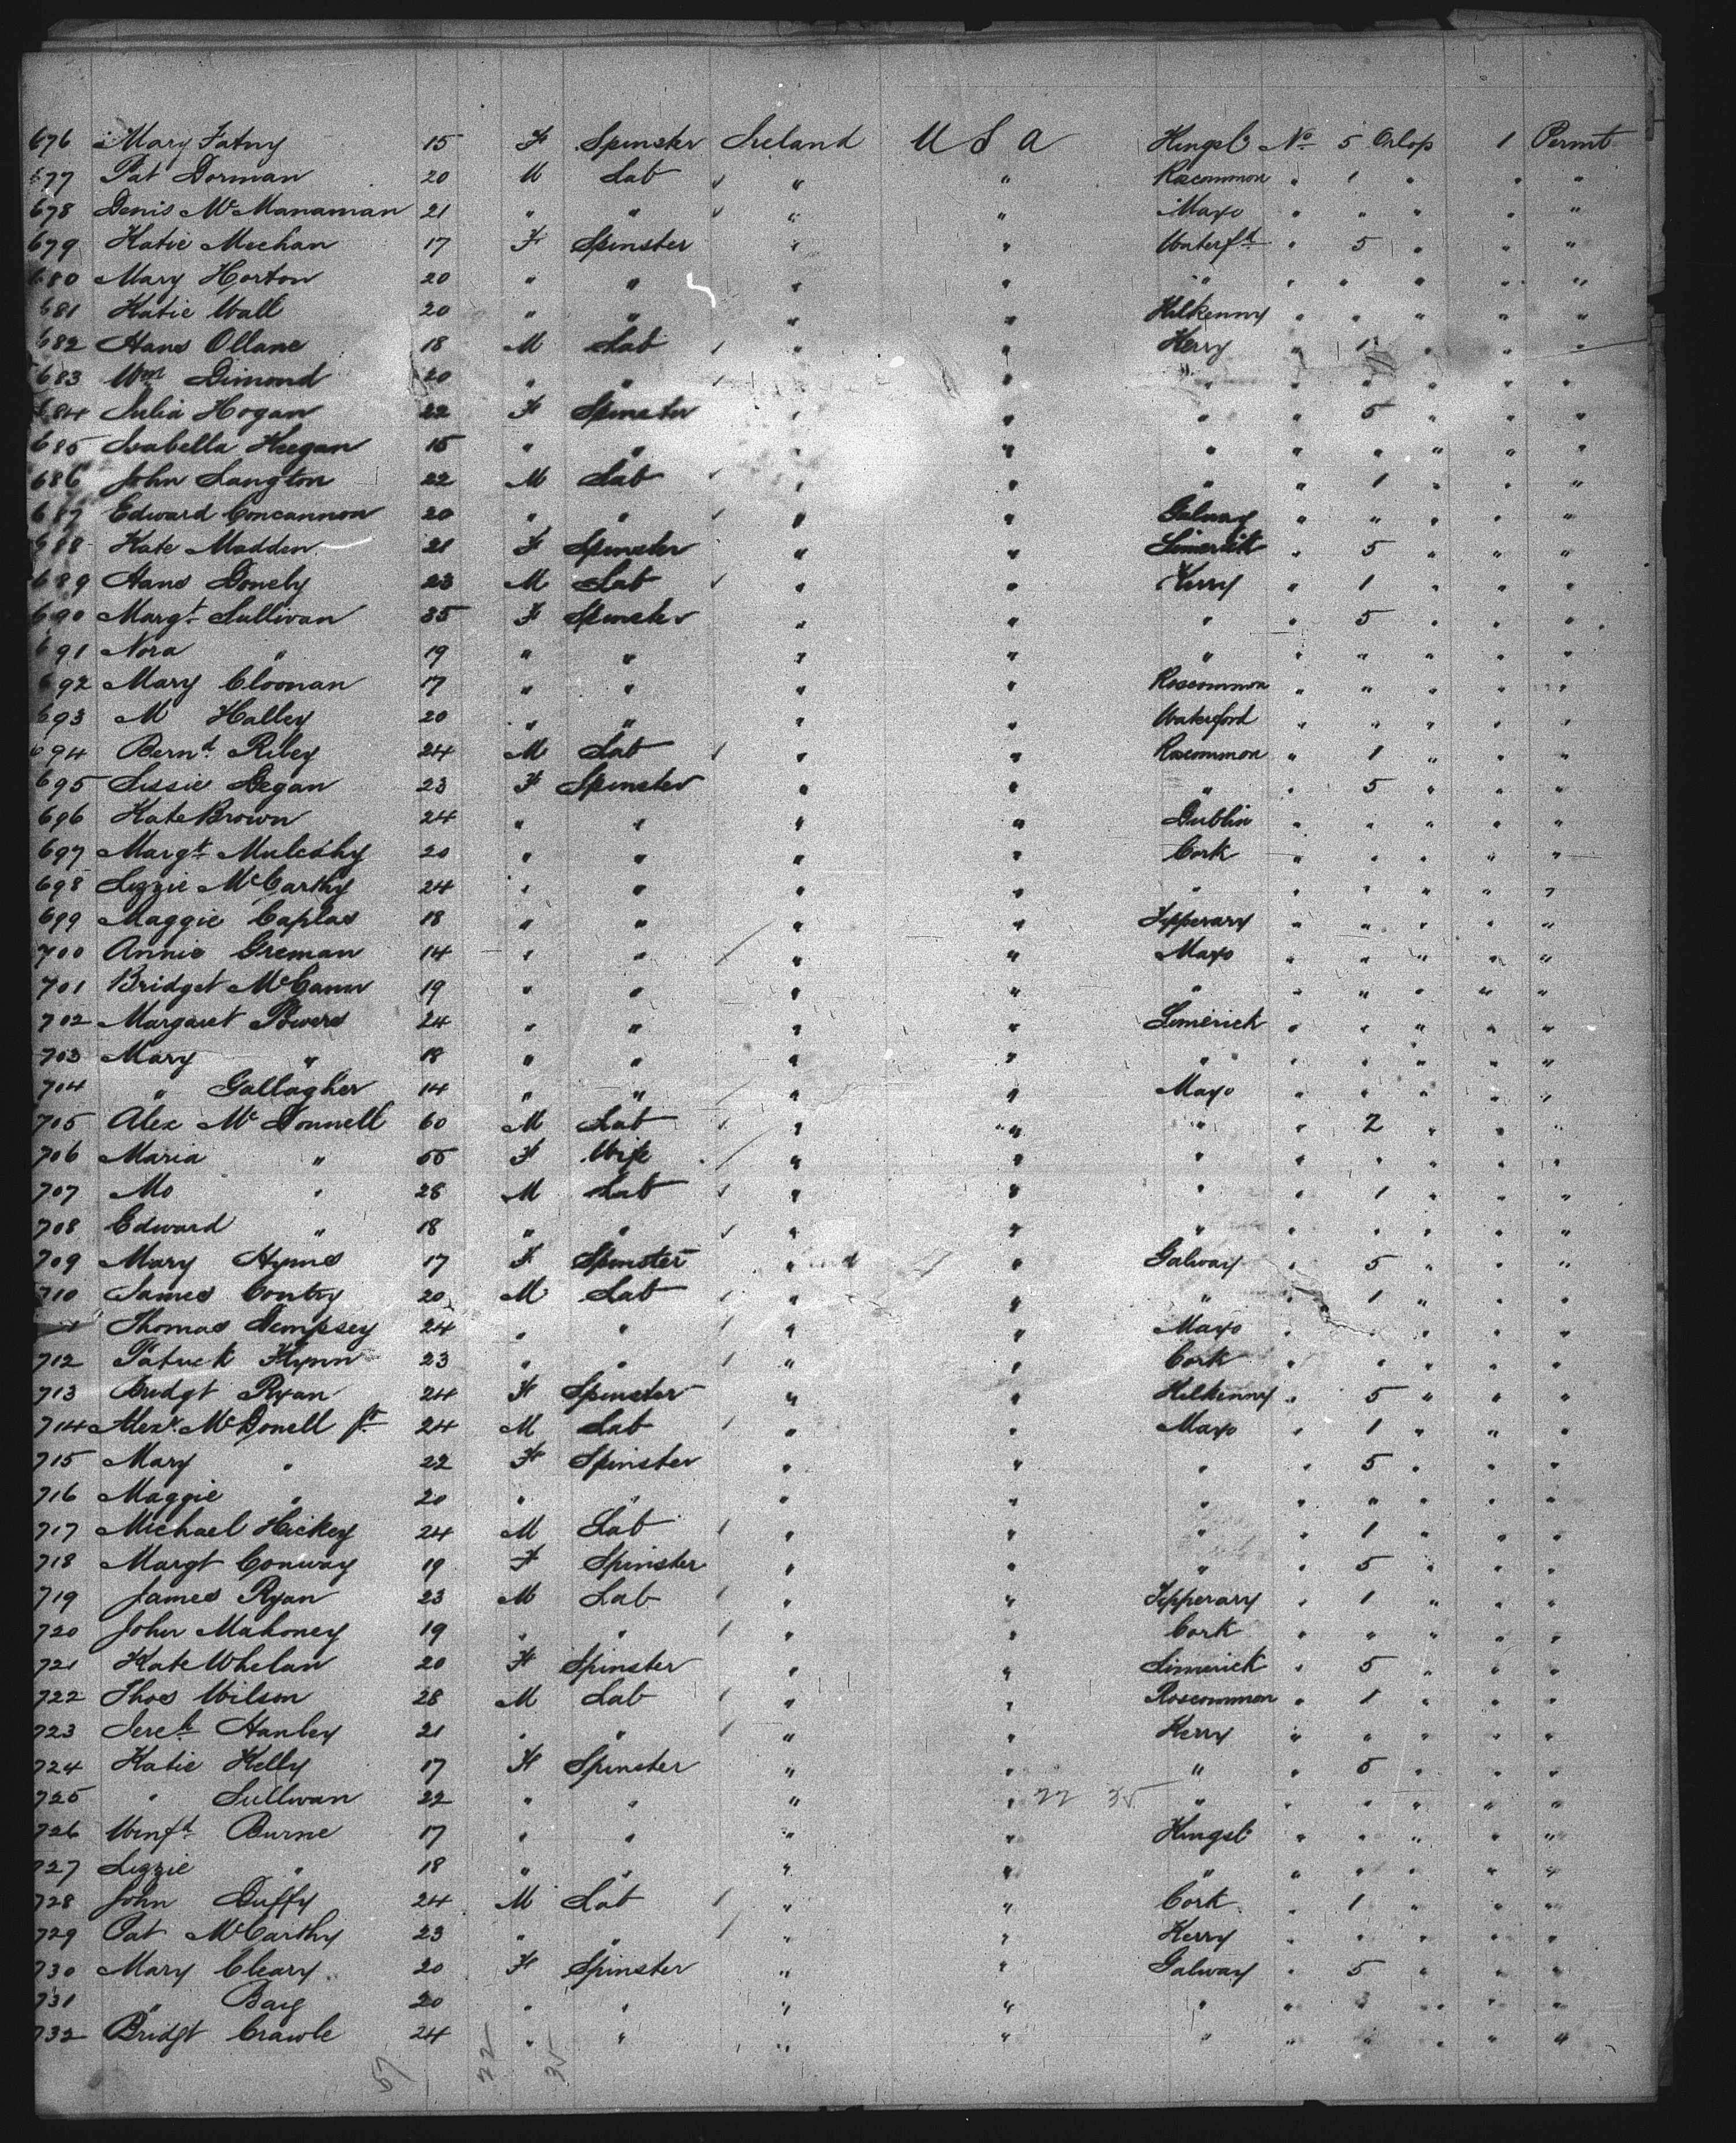 676 Mary Fatny 15 F Spinster Ireland U S A Kingsl No 5 Orlop 1 Permt
677 Pat Dorman 20 M Lab " " Roscommon " 1 " " "
678 Denis McManaman 21 " " " " Mayo " " " " "
679 Katie Meehan 17 F Spinster " " Waterfd " 5 " " "
680 Mary Horton 20 " " " " " " " " " "
681 Katie Wall 20 " " " " Kilkenny " " " " "
682 Hans Ollane 18 M Lab " " Kerry " 1 " " "
683 Wm Dimond 20 " " " " " " " " " "
684 Julia Hogan 22 F Spinster " " " " 5 " " "
685 Isabella Heegan 15 " " " " " " " " " "
686 John Langton 22 M Lab " " " " 1 " " "
687 Edward Concannon 20 " " " " Galway " " " " "
688 Kate Madden 21 F Spinster " " Limerick " 5 " " "
689 Hans Donely 23 M Lab " " Kerry " 1 " " "
690 Margt Sullivan 35 F Spinster " " " " 5 " " "
691 Nora " 19 " " " " " " " " " "
692 Mary Cloonan 17 " " " " Roscommon " " " " "
693 M Halley 20 " " " " Waterford " " " " "
694 Bernd Riley 24 M Lab " " Roscommon " 1 " " "
695 Lissie Degan 23 F Spinster " " " " 5 " " "
696 Kate Brown 24 " " " " Dublin " " " " "
697 Margt Mulcahy 20 " " " " Cork " " " " "
698 Lizzie McCarthy 24 " " " " " " " " " "
699 Maggie Caplas 18 " " " " Tipperary " " " " "
700 Annie Greman 14 " " " " Mayo " " " " "
701 Bridget McCann 19 " " " " " " " " " "
702 Margaret Powers 24 " " " " Limerick " " " " "
703 Mary " 18 " " " " " " " " " "
704 " Gallagher 14 " " " " Mayo " " " " "
705 Alex McDonnell 60 M Lab " " " " 2 " " "
706 Maria " 55 F Wife " " " " " " " "
707 Mo " 28 M Lab " " " " 1 " " "
708 Edward " 18 " " " " " " " " " "
709 Mary Hynes 17 F Spinster " " Galway " 5 " " "
710 James Contry 20 M Lab " " " " 1 " " "
" Thomas Dempsey 24 " " " " Mayo " " " " "
712 Patrick Flynn 23 " " " " Cork " " " " "
713 Bridgt Ryan 24 F Spinster " " Kilkenny " 5 " " "
714 Alexr McDonell Jr 24 M Lab " " Mayo " 1 " " "
715 Mary " 22 F Spinster " " " " 5 " " "
716 Maggie " 20 " " " " " " " " " "
717 Michael Hickey 24 M Lab " " " " 1 " " "
718 Margt Conway 19 F Spinster " " " " 5 " " "
719 James Ryan 23 M Lab " " Tipperary " 1 " " "
720 John Mahoney 19 " " " " Cork " " " " "
721 Kate Whelan 20 F Spinster " " Limerick " 5 " " "
722 Thos Wilson 28 M Lab " " Roscommon " 1 " " "
723 Jereh Hanley 21 " " " " Kerry " " " " "
724 Katie Kelly 17 F Spinster " " " " 5 " " "
725 " Sullivan 22 " " " " 22 35 " " " " " "
726 Winfd Burne 17 " " " " Kingsl " " " " "
727 Lizzie " 18 " " " " " " " " " "
728 John Duffy 24 M Lab " " Cork " 1 " " "
729 Pat McCarthy 23 " " " " Kerry " " " " "
730 Mary Cleary 20 F Spinster " " Galway " 5 " " "
731 " Bary 20 " " " " " " " " " "
732 Bridgt Crawle 24 " " " " " " " " " "
57 22 35